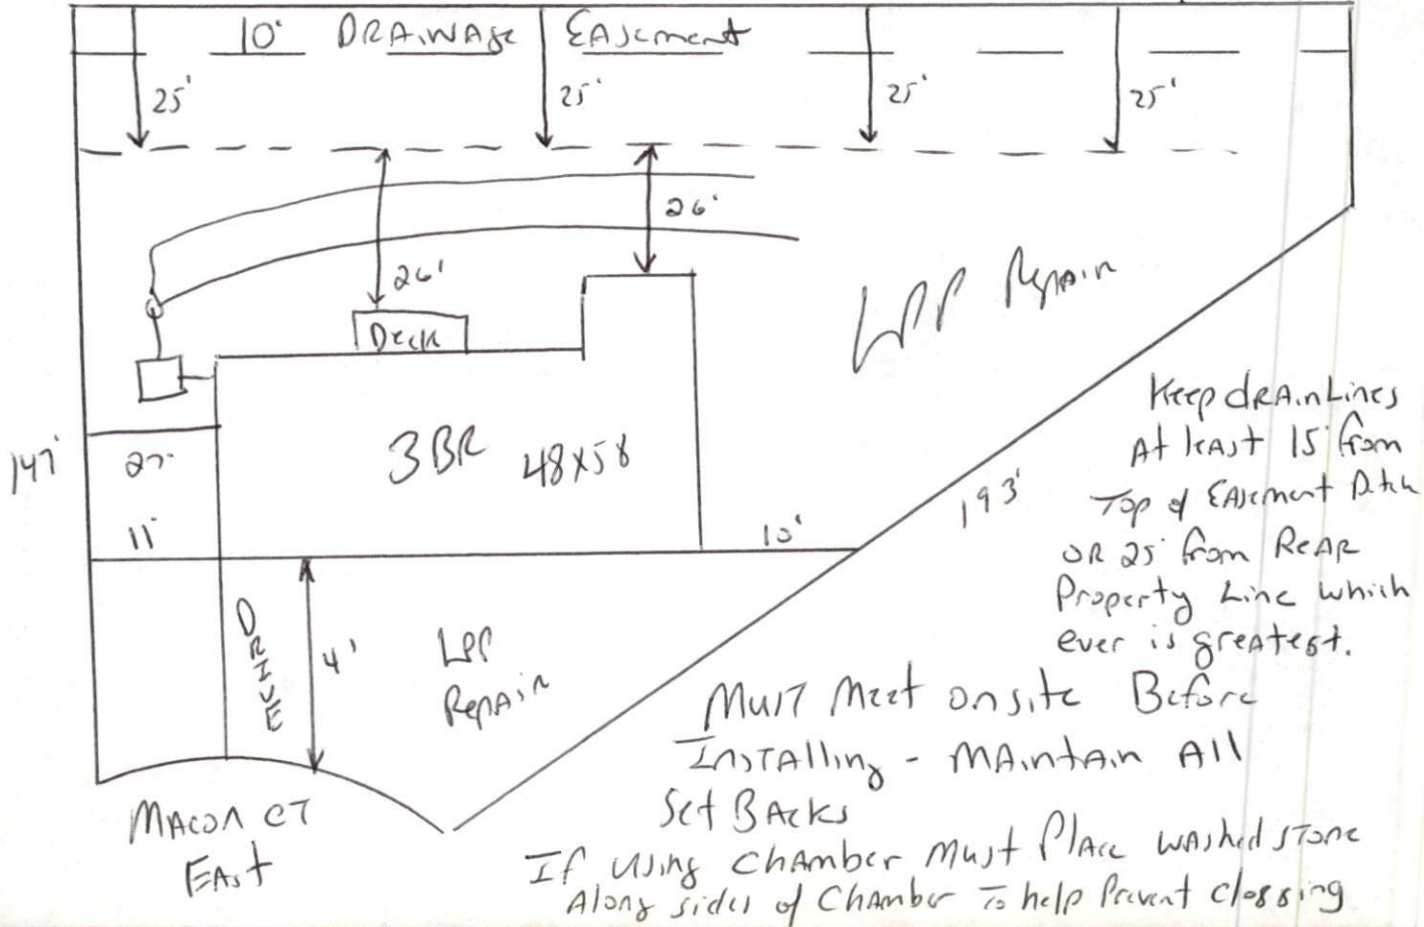 10' DRAINAGE EASEMENT
25' 25' 25' 25'
26'
26'
Deck
LPP Repair
3 BR 48x58
147'
27'
11'
10'
193'
Keep drainLines
At least 15' from
Top of Easement Ditch
OR 25' from REAR
Property Line which
ever is greatest.
DRIVE
4'
LPP
Repair
Must Meet onsite Before
Installing - MAintain All
Set BAcks
MACON CT
EAst
If using Chamber Must PlAce WAshed stone
Along sides of Chamber To help Prevent clogging